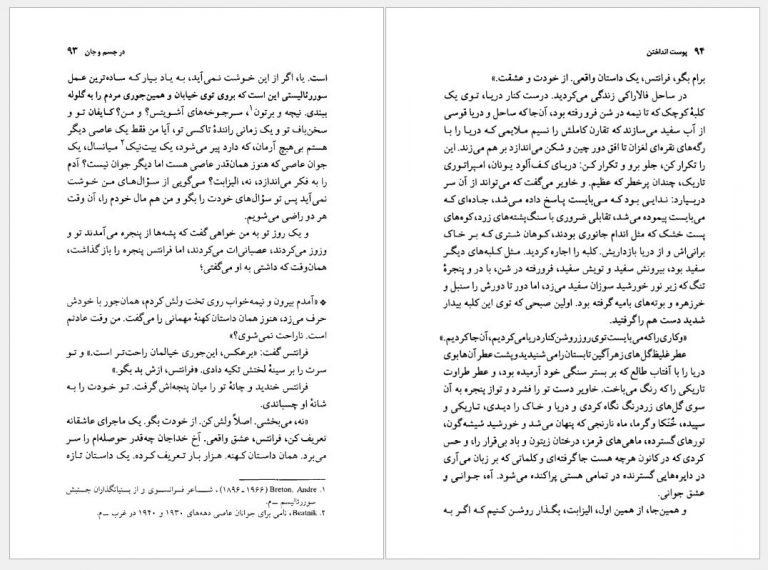 در جسم و جان   ۹۳
است. یا، اگر از این خوشت نمی‌آید، به یاد بیار که ساده‌ترین عمل
سوررئالیستی این است که بروی توی خیابان و همین‌جوری مردم را به گلوله
ببندی. نیچه و برتون۱، سرجوخه‌های آشویتس؟ و من؟ کایفان تو و
سخن‌باف تو و یک زمانی رانندهٔ تاکسی تو، آیا من فقط یک عاصی دیگر
هستم بی‌هیچ آرمان، که دارد پیر می‌شود، یک بیت‌نیک۲ میانسال، یک
جوان عاصی که هنوز همان‌قدر عاصی هست اما دیگر جوان نیست؟ آدم
را به فکر می‌اندازد، نه، الیزابت؟ می‌گویی از سؤال‌های من خوشت
نمی‌آید پس تو سؤال‌های خودت را بگو و من هم مال خودم را، آن وقت
هر دو راضی می‌شویم.
و یک روز تو به من خواهی گفت که پشه‌ها از پنجره می‌آمدند تو و
وزوز می‌کردند، عصبانی‌ات می‌کردند، اما فرانتس پنجره را باز گذاشت،
همان‌وقت که داشتی به او می‌گفتی؛
* «آمدم بیرون و نیمه‌خواب روی تخت ولش کردم، همان‌جور با خودش
حرف می‌زد، هنوز همان داستان کهنهٔ مهمانی را می‌گفت. من وقت عادتم
است. ناراحت نمی‌شوی؟»
فرانتس گفت: «برعکس، این‌جوری خیالمان راحت‌تر است.» و تو
سرت را بر سینهٔ لختش تکیه دادی. «فرانتس، ازش بد بگو.»
فرانتس خندید و چانهٔ تو را میان پنجه‌اش گرفت. تو خودت را به
شانهٔ او چسباندی.
«نه، می‌بخشی. اصلاً ولش کن. از خودت بگو. یک ماجرای عاشقانه
تعریف کن، فرانتس، عشق واقعی. آخ خداجان چه‌قدر حوصله‌ام را سر
می‌برد. همان داستان کهنه. هزار بار تعریف کرده. یک داستان تازه
۱. Breton, Andre (۱۹۶۶-۱۸۹۶)، شاعر فرانسوی و از بنیانگذاران جنبش
سوررئالیسم –م.
۲. Beatnik، نامی برای جوانان عاصی دهه‌های ۱۹۳۰ و ۱۹۴۰ در غرب –م.
۹۴   پوست انداختن
برام بگو، فرانتس، یک داستان واقعی. از خودت و عشقت.»
در ساحل فالاراکی زندگی می‌کردید. درست کنار دریا، توی یک
کلبهٔ کوچک که تا نیمه در شن فرورفته بود، آن‌جا که ساحل و دریا قوسی
از آب سفید می‌سازند که تقارن کاملش را نسیم ملایمی که دریا را با
رگه‌های نقره‌ای لغزان تا افق دور چین و شکن می‌اندازد بر هم می‌زند. این
را تکرار کن، جلو برو و تکرار کن: دریای کف‌آلود یونان، امپراتوری
تاریک، چندان پرخطر که عظیم. و خاویر می‌گفت که می‌تواند از آن سر
دربیارد: ندایی بود که می‌بایست پاسخ داده می‌شد، جاده‌ای که
می‌بایست پیموده می‌شد، تقابلی ضروری با سنگ‌پشته‌های زرد، کوه‌های
پست خشک که مثل اندام جانوری بودند، کوهان شتری که بر خاک
برانی‌اش و از دریا بازداریش. کلبه را اجاره کردید. مثل کلبه‌های دیگر
سفید بود، بیرونش سفید و تویش سفید، فرورفته در شن، با در و پنجرهٔ
تنگ که زیر نور خورشید سوزان سفید می‌زد، اما دور تا دورش را سنبل و
خرزهره و بوته‌های بامیه گرفته بود. اولین صبحی که توی این کلبه بیدار
شدید دست هم را گرفتید.
«و کاری را که می‌بایست توی روز روشن کنار دریا می‌کردیم، آن‌جا کردیم.»
عطر غلیظ گل‌های زهرآگین تابستان را می‌شنیدید و پشت عطر آن‌ها بوی
دریا را با آفتاب طالع که بر بستر سنگی خود آرمیده بود، و عطر طراوت
تاریکی را که رنگ می‌باخت. خاویر دست تو را فشرد و تو از پنجره به آن
سوی گل‌های زردرنگ نگاه کردی و دریا و خاک را دیدی، تاریکی و
سپیده، خُنَکا و گرما، ماه نارنجی که پنهان می‌شد و خورشید شیشه‌گون،
نورهای گسترده، ماهی‌های قرمز، درختان زیتون و باد بی‌قرار را، و حس
کردی که در کانون هرچه هست جا گرفته‌ای و کلماتی که بر زبان می‌آری
در دایره‌هایی گسترنده در تمامی هستی پراکنده می‌شود. آه، جوانی و
عشق جوانی.
و همین‌جا، از همین اول، الیزابت، بگذار روشن کنیم که اگر به